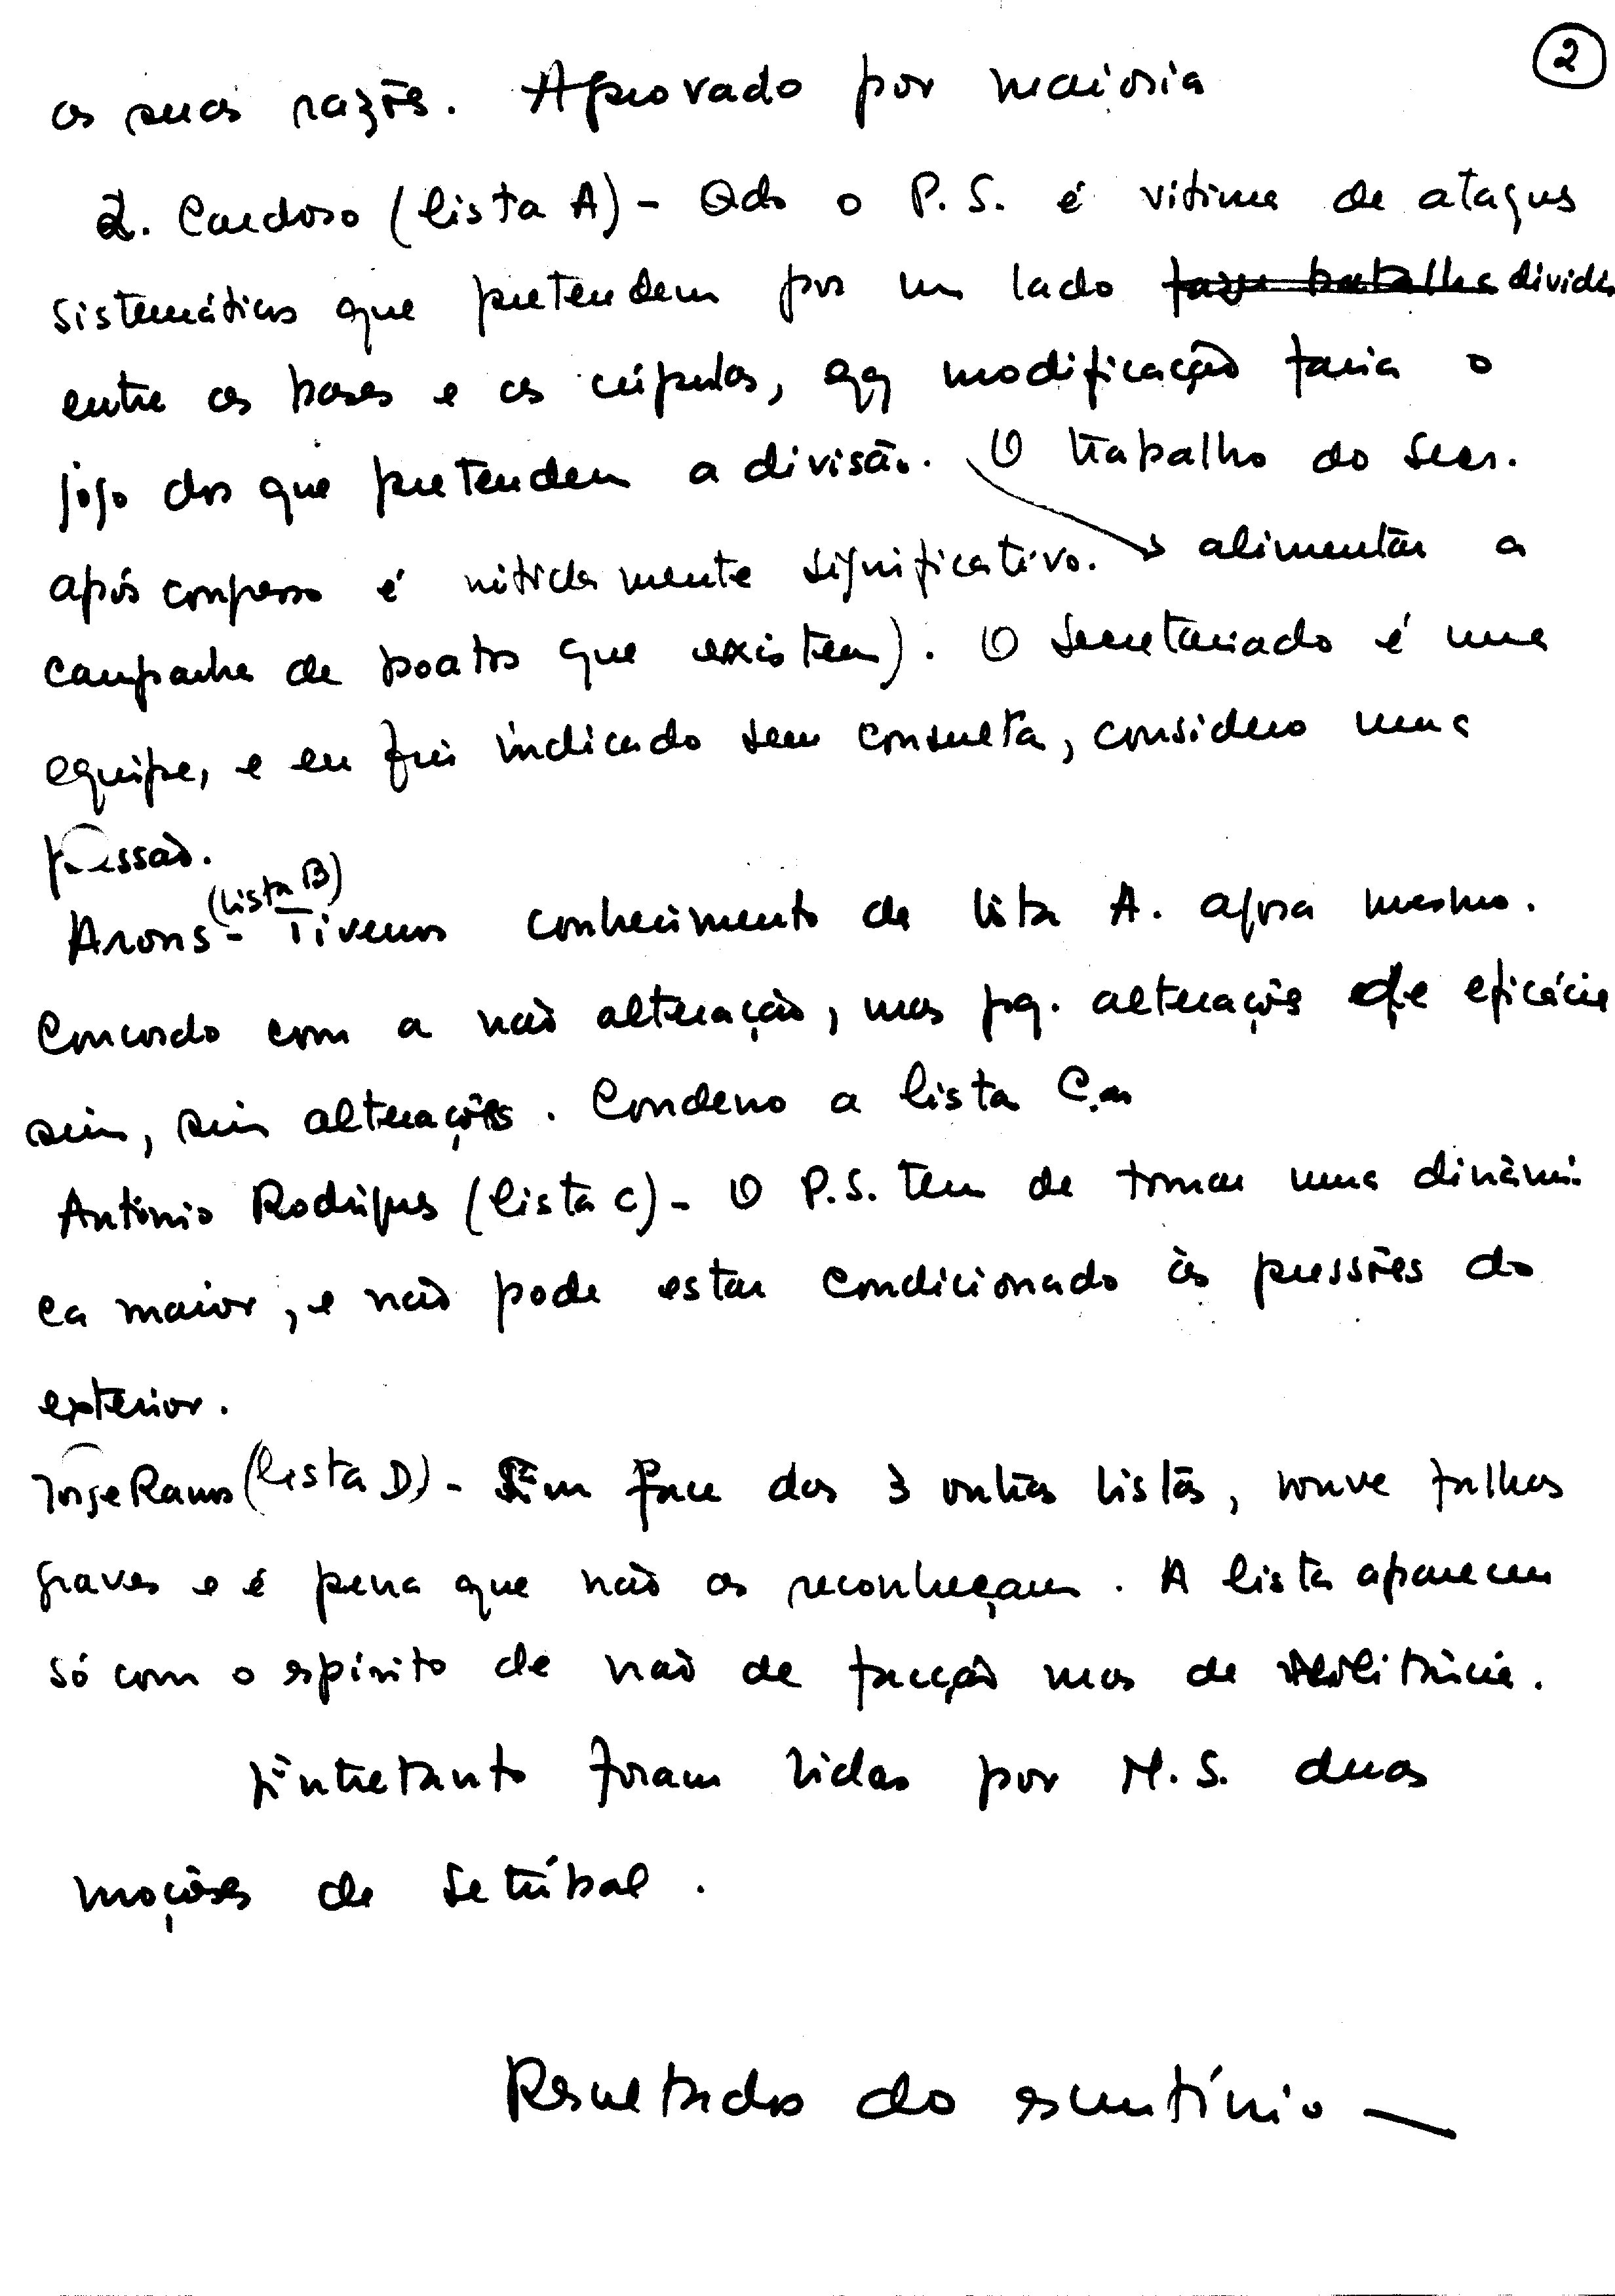 2
as suas razões. Aprovado por maioria
2. Cardoso (lista A) - Qdo o P. S. é vitima de ataques
sistemáticos que pretendem por um lado dividir
entre as bases e as cúpulas, qq modificação faria o
jogo dos que pretendem a divisão. O trabalho do Secr.
após congresso é nitidamente significativo. → alimentar a
campanha de boatos que existem). O Secretariado é uma
equipe, e eu fui indicado sem consulta, considero uma
pressão.
(lista B)
Arons - Tivemos conhecimento da lista A. agora mesmo.
Concordo com a não alteração, mas pq. alterações de eficácia
sim, sim alterações. Condeno a lista C.
António Rodrigues (lista C) - O P.S. tem de tomar uma dinâmi-
ca maior, e não pode estar condicionado às pressões do
exterior.
Jorge Ramos (lista D) - Em face das 3 outras listas, houve falhas
graves e é pena que não as reconheçam. A lista apareceu
só com o espírito de não de facção mas de militância.
Entretanto foram lidas por M. S. duas
moções de Setúbal.
Resultados do escrutínio —